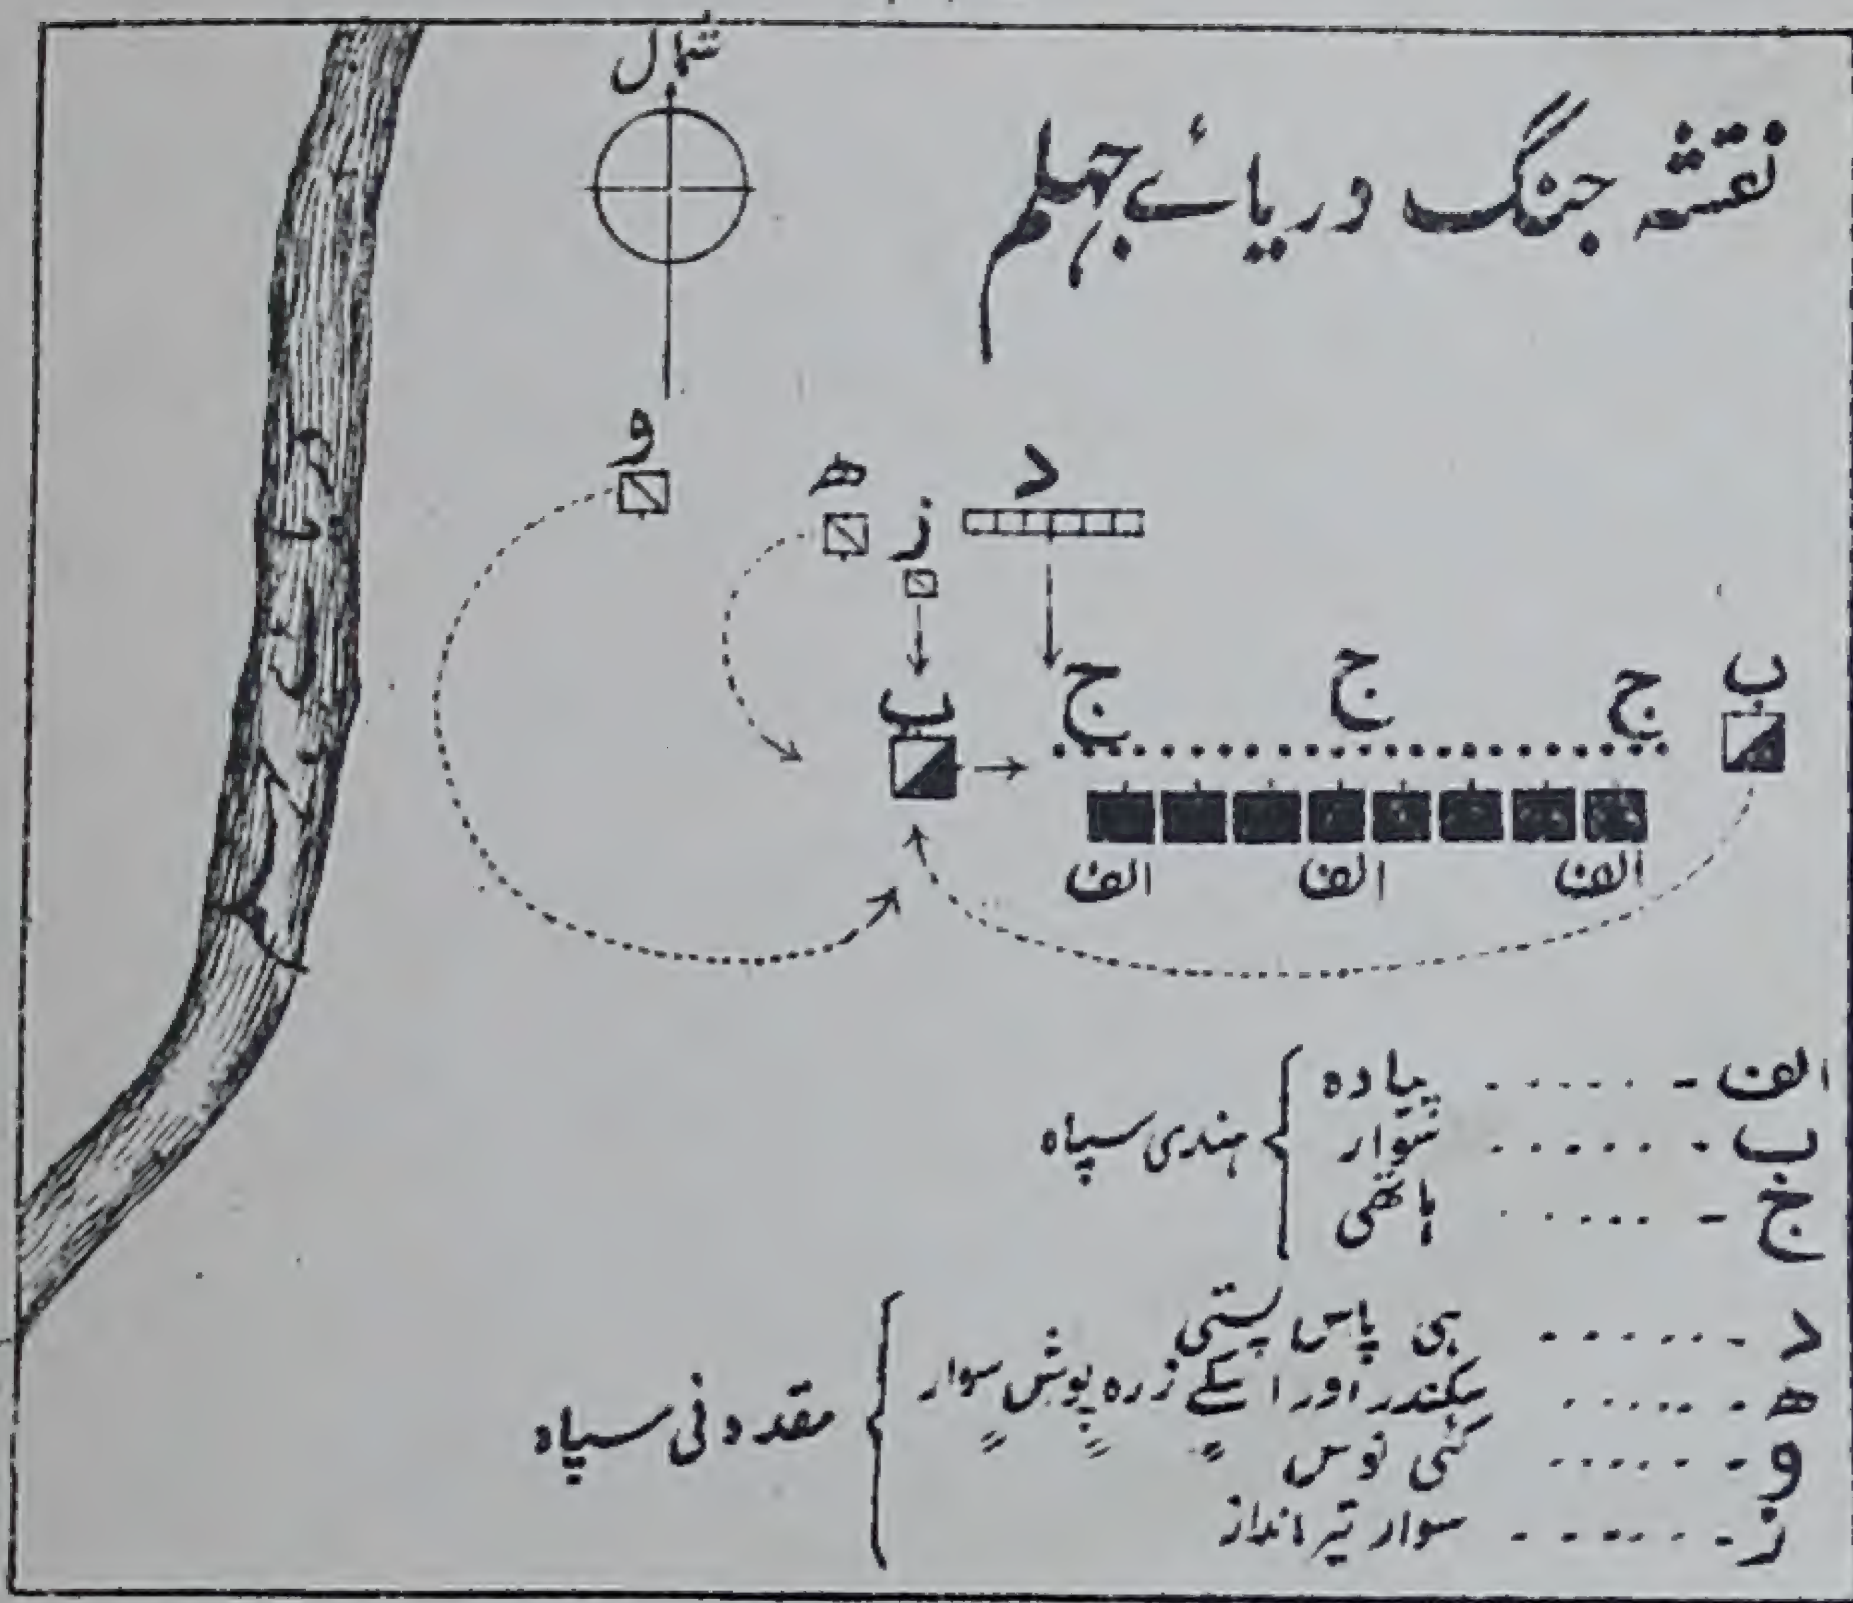 شمال
نقشہ جنگ دریائے جہلم
و
ھ
ز
د
ب
ج
ج
ج
ب
الف
الف
الف
دریائے جہلم
الف - ..... پیادہ
ب - ..... سوار
ج - ..... ہاتھی
ہندی سپاہ
د - ..... ہی پاس پستی
ھ - ..... سکندر اور اسکے زرہ پوش سوار
و - ..... کئی نوس
ز - ..... سوار تیر انداز
مقدونی سپاہ